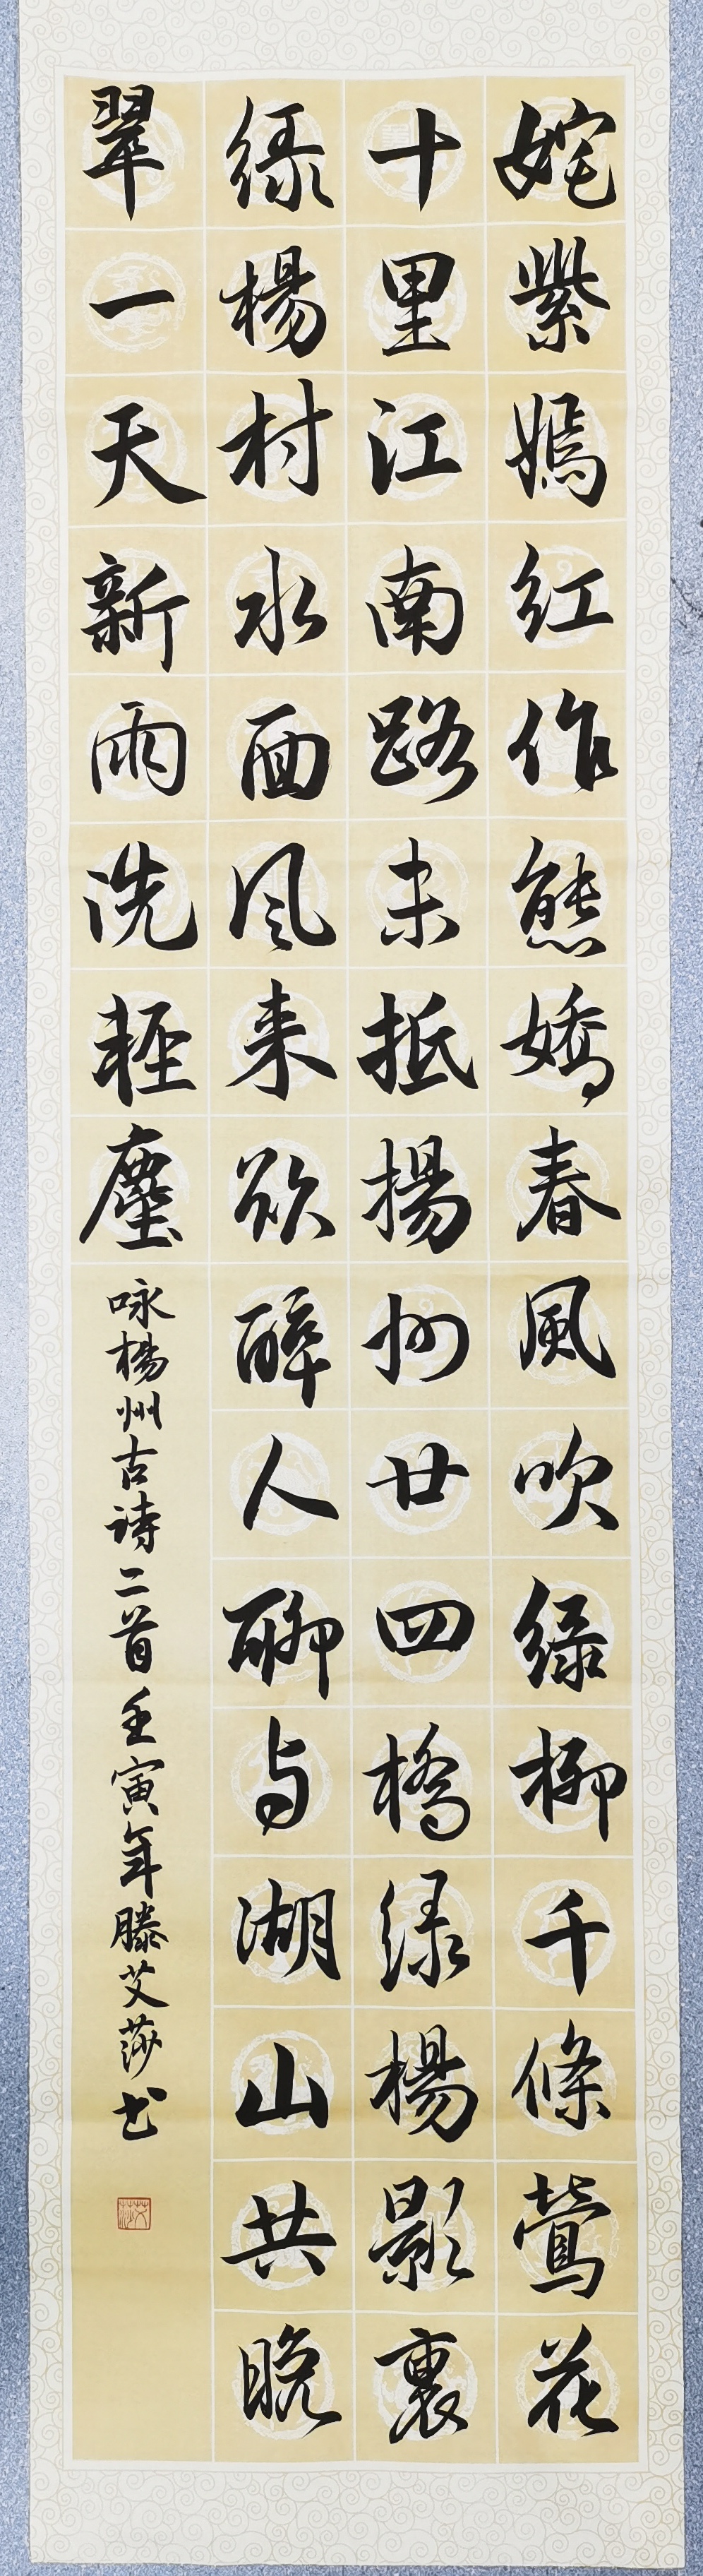 姹紫嫣红作態嬌春風吹绿柳千條鶯花
十里江南路未抵揚州廿四橋绿楊影裏
绿楊村水面风来欲醉人聊与湖山共晚
翠一天新雨洗輕塵
咏楊州古诗二首壬寅年滕艾莎书